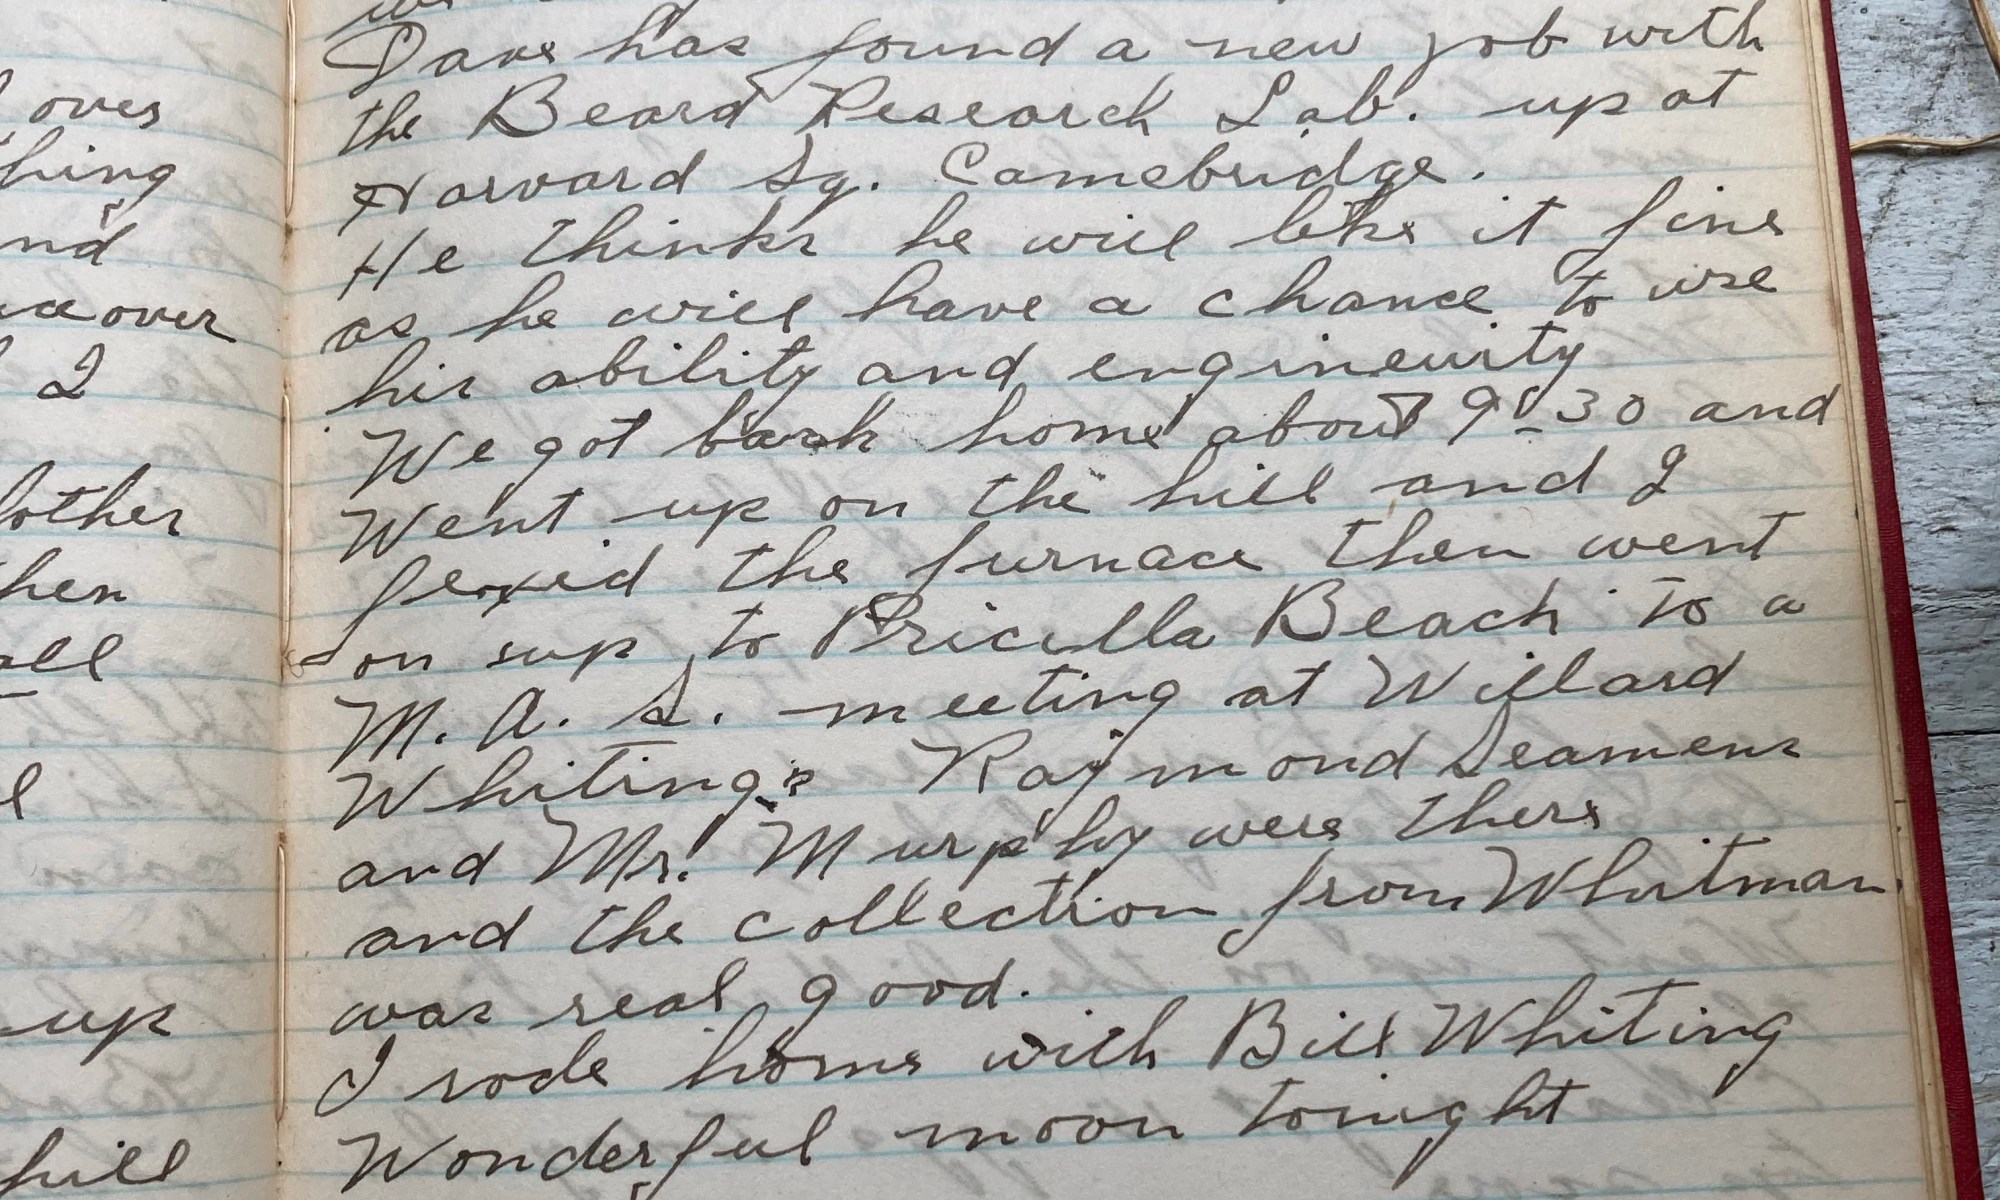 over
hing
nd
over
I
other
hen
all
l
up
hill
Dave has found a new job with
the Beard Research Lab. up at
Harvard Sq. Camebridge.
He thinks he will like it fine
as he will have a chance to use
his ability and engineuity
We got back home about 9:30 and
Went up on the hill and I
fexed the furnace then went
on up to Pricilla Beach to a
M. A. S. meeting at Willard
Whiting's Raymond Seamens
and Mr. Murphy were there
and the collection from Whitman
was real good.
I rode home with Bill Whiting
Wonderful moon tonight